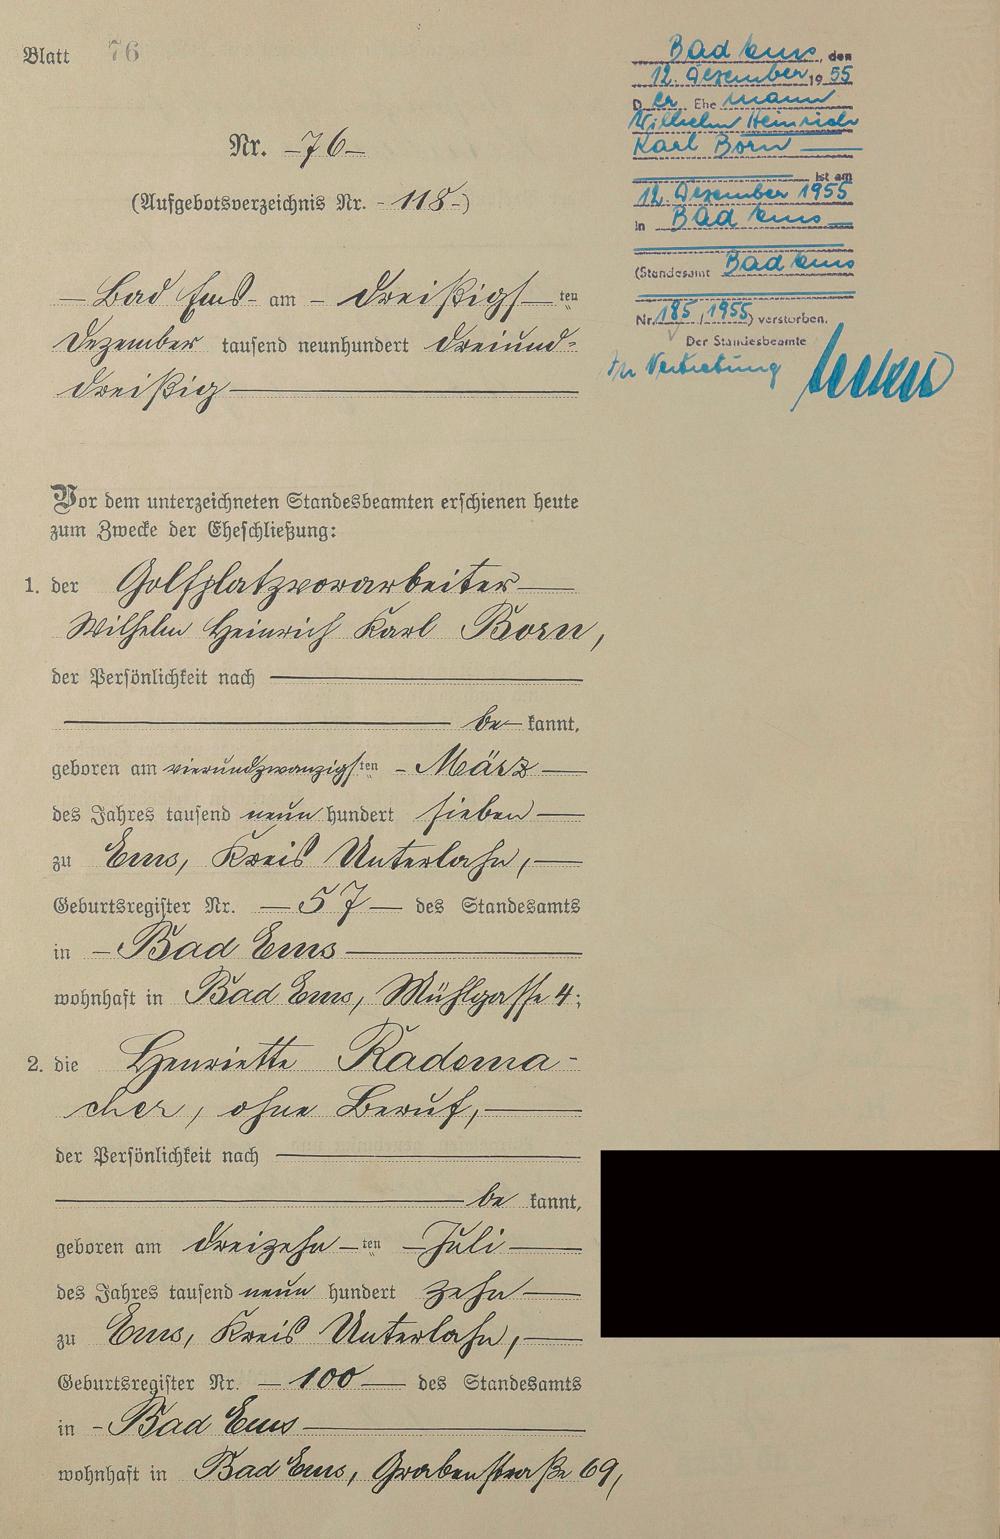 Blatt 76
Nr. -76-
(Aufgebotsverzeichnis Nr. - 118 -)
— Bad Ems - am - dreißigs — ten
Dezember tausend neunhundert dreiund-
dreißig —
Vor dem unterzeichneten Standesbeamten erschienen heute
zum Zwecke der Eheschließung:
1. der Golfplatzvorarbeiter —
Wilhelm Heinrich Karl Born,
der Persönlichkeit nach —
— be — kannt,
geboren am vierundzwanzigsten - März —
des Jahres tausend neun hundert sieben —
zu Ems, Kreis Unterlahn, —
Geburtsregister Nr. — 57 — des Standesamts
in - Bad Ems —
wohnhaft in Bad Ems, Mühlgasse 4;
2. die Henriette Radema-
cher, ohne Beruf, —
der Persönlichkeit nach —
— be kannt,
geboren am dreizehn — ten — Juli —
des Jahres tausend neun hundert zehn —
zu Ems, Kreis Unterlahn, —
Geburtsregister Nr. — 100 — des Standesamts
in - Bad Ems —
wohnhaft in Bad Ems, Grabenstraße 69,
Bad Ems, den
12. Dezember 19 55
D er Ehe mann
Wilhelm Heinrich
Karl Born —
— ist am
12. Dezember 1955
in Bad Ems —
(Standesamt Bad Ems
Nr. 185 / 1955) verstorben.
Der Standesbeamte
In Vertretung